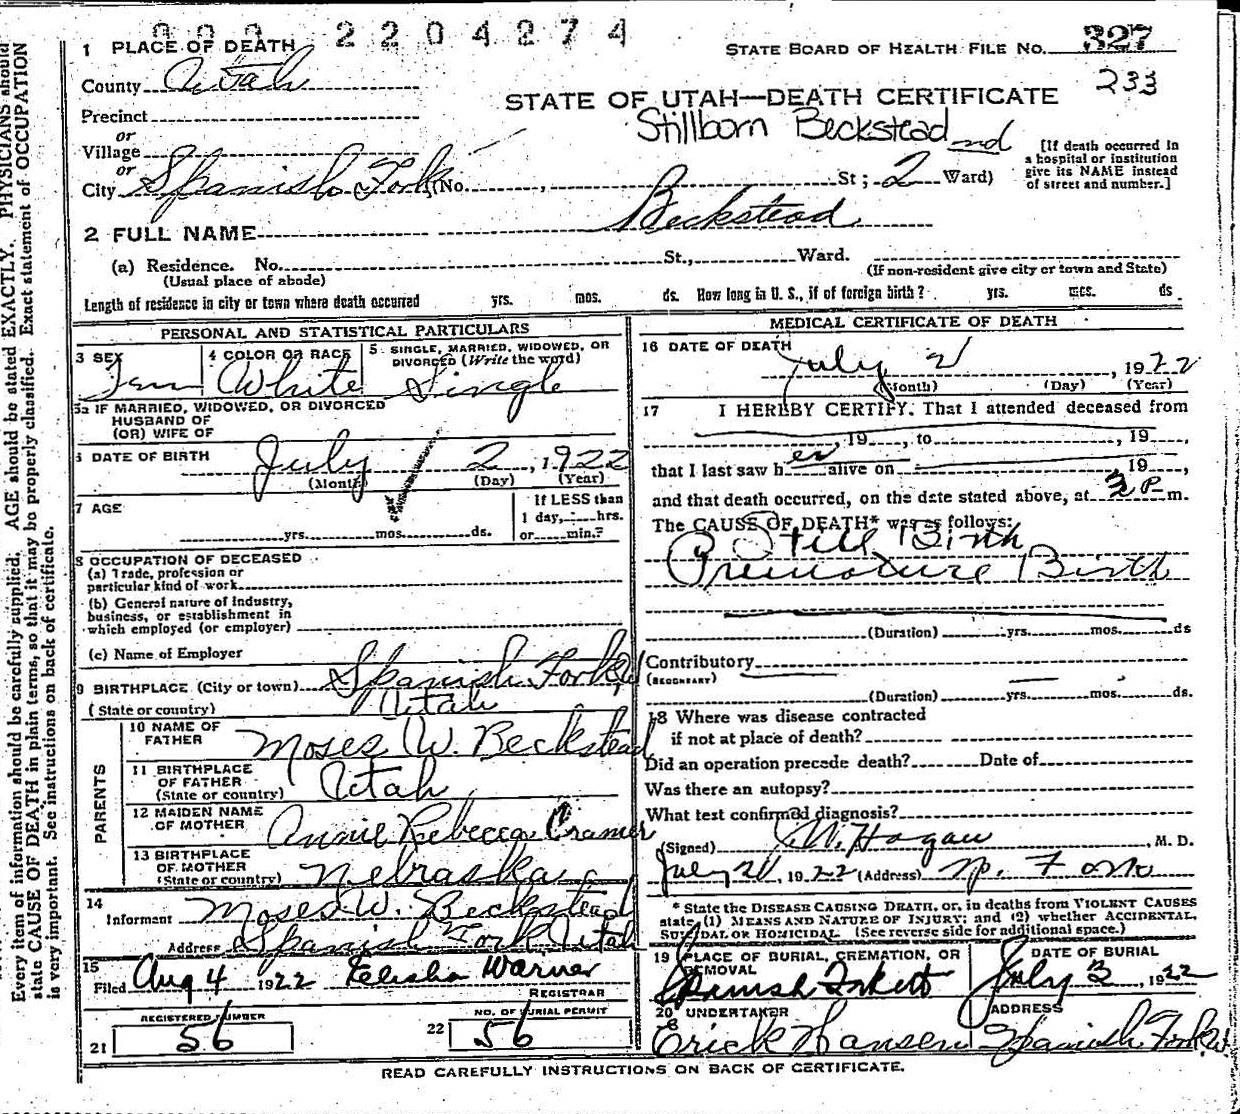 2204274
1 PLACE OF DEATH
STATE BOARD OF HEALTH FILE NO. 327
County Utah
233
STATE OF UTAH—DEATH CERTIFICATE
Precinct
Stillborn Beckstead
or
Village
or
City Spanish Fork (No. , St; 2nd Ward)
[If death occurred in
a hospital or institution
give its NAME instead
of street and number.]
2 FULL NAME Beckstead
(a) Residence. No. St., Ward.
(Usual place of abode)
(If non-resident give city or town and State)
Length of residence in city or town where death occurred yrs. mos. ds. How long in U. S., if of foreign birth? yrs. mos. ds.
PERSONAL AND STATISTICAL PARTICULARS
3 SEX
Fem
4 COLOR OR RACE
White
5 SINGLE, MARRIED, WIDOWED, OR
DIVORCED (Write the word)
Single
5a IF MARRIED, WIDOWED, OR DIVORCED
HUSBAND OF
(OR) WIFE OF
6 DATE OF BIRTH July 2, 1922
(Month) (Day) (Year)
7 AGE
yrs. mos. ds.
If LESS than
1 day, hrs.
or min.?
8 OCCUPATION OF DECEASED
(a) Trade, profession or
particular kind of work
(b) General nature of industry,
business, or establishment in
which employed (or employer)
(c) Name of Employer
9 BIRTHPLACE (City or town) Spanish Fork
(State or country) Utah
PARENTS
10 NAME OF
FATHER Moses W. Beckstead
11 BIRTHPLACE
OF FATHER
(State or country) Utah
12 MAIDEN NAME
OF MOTHER Annie Rebecca Cramer
13 BIRTHPLACE
OF MOTHER
(State or country) Nebraska
14
Informant Moses W. Beckstead
Address Spanish Fork Utah
15
Filed Aug 4 1922 Elisha Warner
REGISTRAR
REGISTERED NUMBER
21 56
NO. OF BURIAL PERMIT
22 56
MEDICAL CERTIFICATE OF DEATH
16 DATE OF DEATH
July 2, 1922
(Month) (Day) (Year)
17 I HEREBY CERTIFY. That I attended deceased from
, 19 , to , 19 ,
that I last saw her alive on , 19 ,
and that death occurred, on the date stated above, at 3 P m.
The CAUSE OF DEATH* was as follows:
Still Birth
Premature Birth
(Duration) yrs. mos. ds
Contributory
(SECONDARY)
(Duration) yrs. mos. ds.
18 Where was disease contracted
if not at place of death?
Did an operation precede death? Date of
Was there an autopsy?
What test confirmed diagnosis?
(Signed) W. Hogan, M. D.
July 21, 1922 (Address) Sp. Fork
* State the DISEASE CAUSING DEATH, or, in deaths from VIOLENT CAUSES
state (1) MEANS AND NATURE OF INJURY; and (2) whether ACCIDENTAL,
SUICIDAL OR HOMICIDAL. (See reverse side for additional space.)
19 PLACE OF BURIAL, CREMATION, OR
REMOVAL
Spanish Fork
DATE OF BURIAL
July 3, 1922
20 UNDERTAKER
Erick Hansen
ADDRESS
Spanish Fork
READ CAREFULLY INSTRUCTIONS ON BACK OF CERTIFICATE.
Every item of information should be carefully supplied. AGE should be stated EXACTLY. PHYSICIANS should
state CAUSE OF DEATH in plain terms, so that it may be properly classified. Exact statement of OCCUPATION
is very important. See instructions on back of certificate.